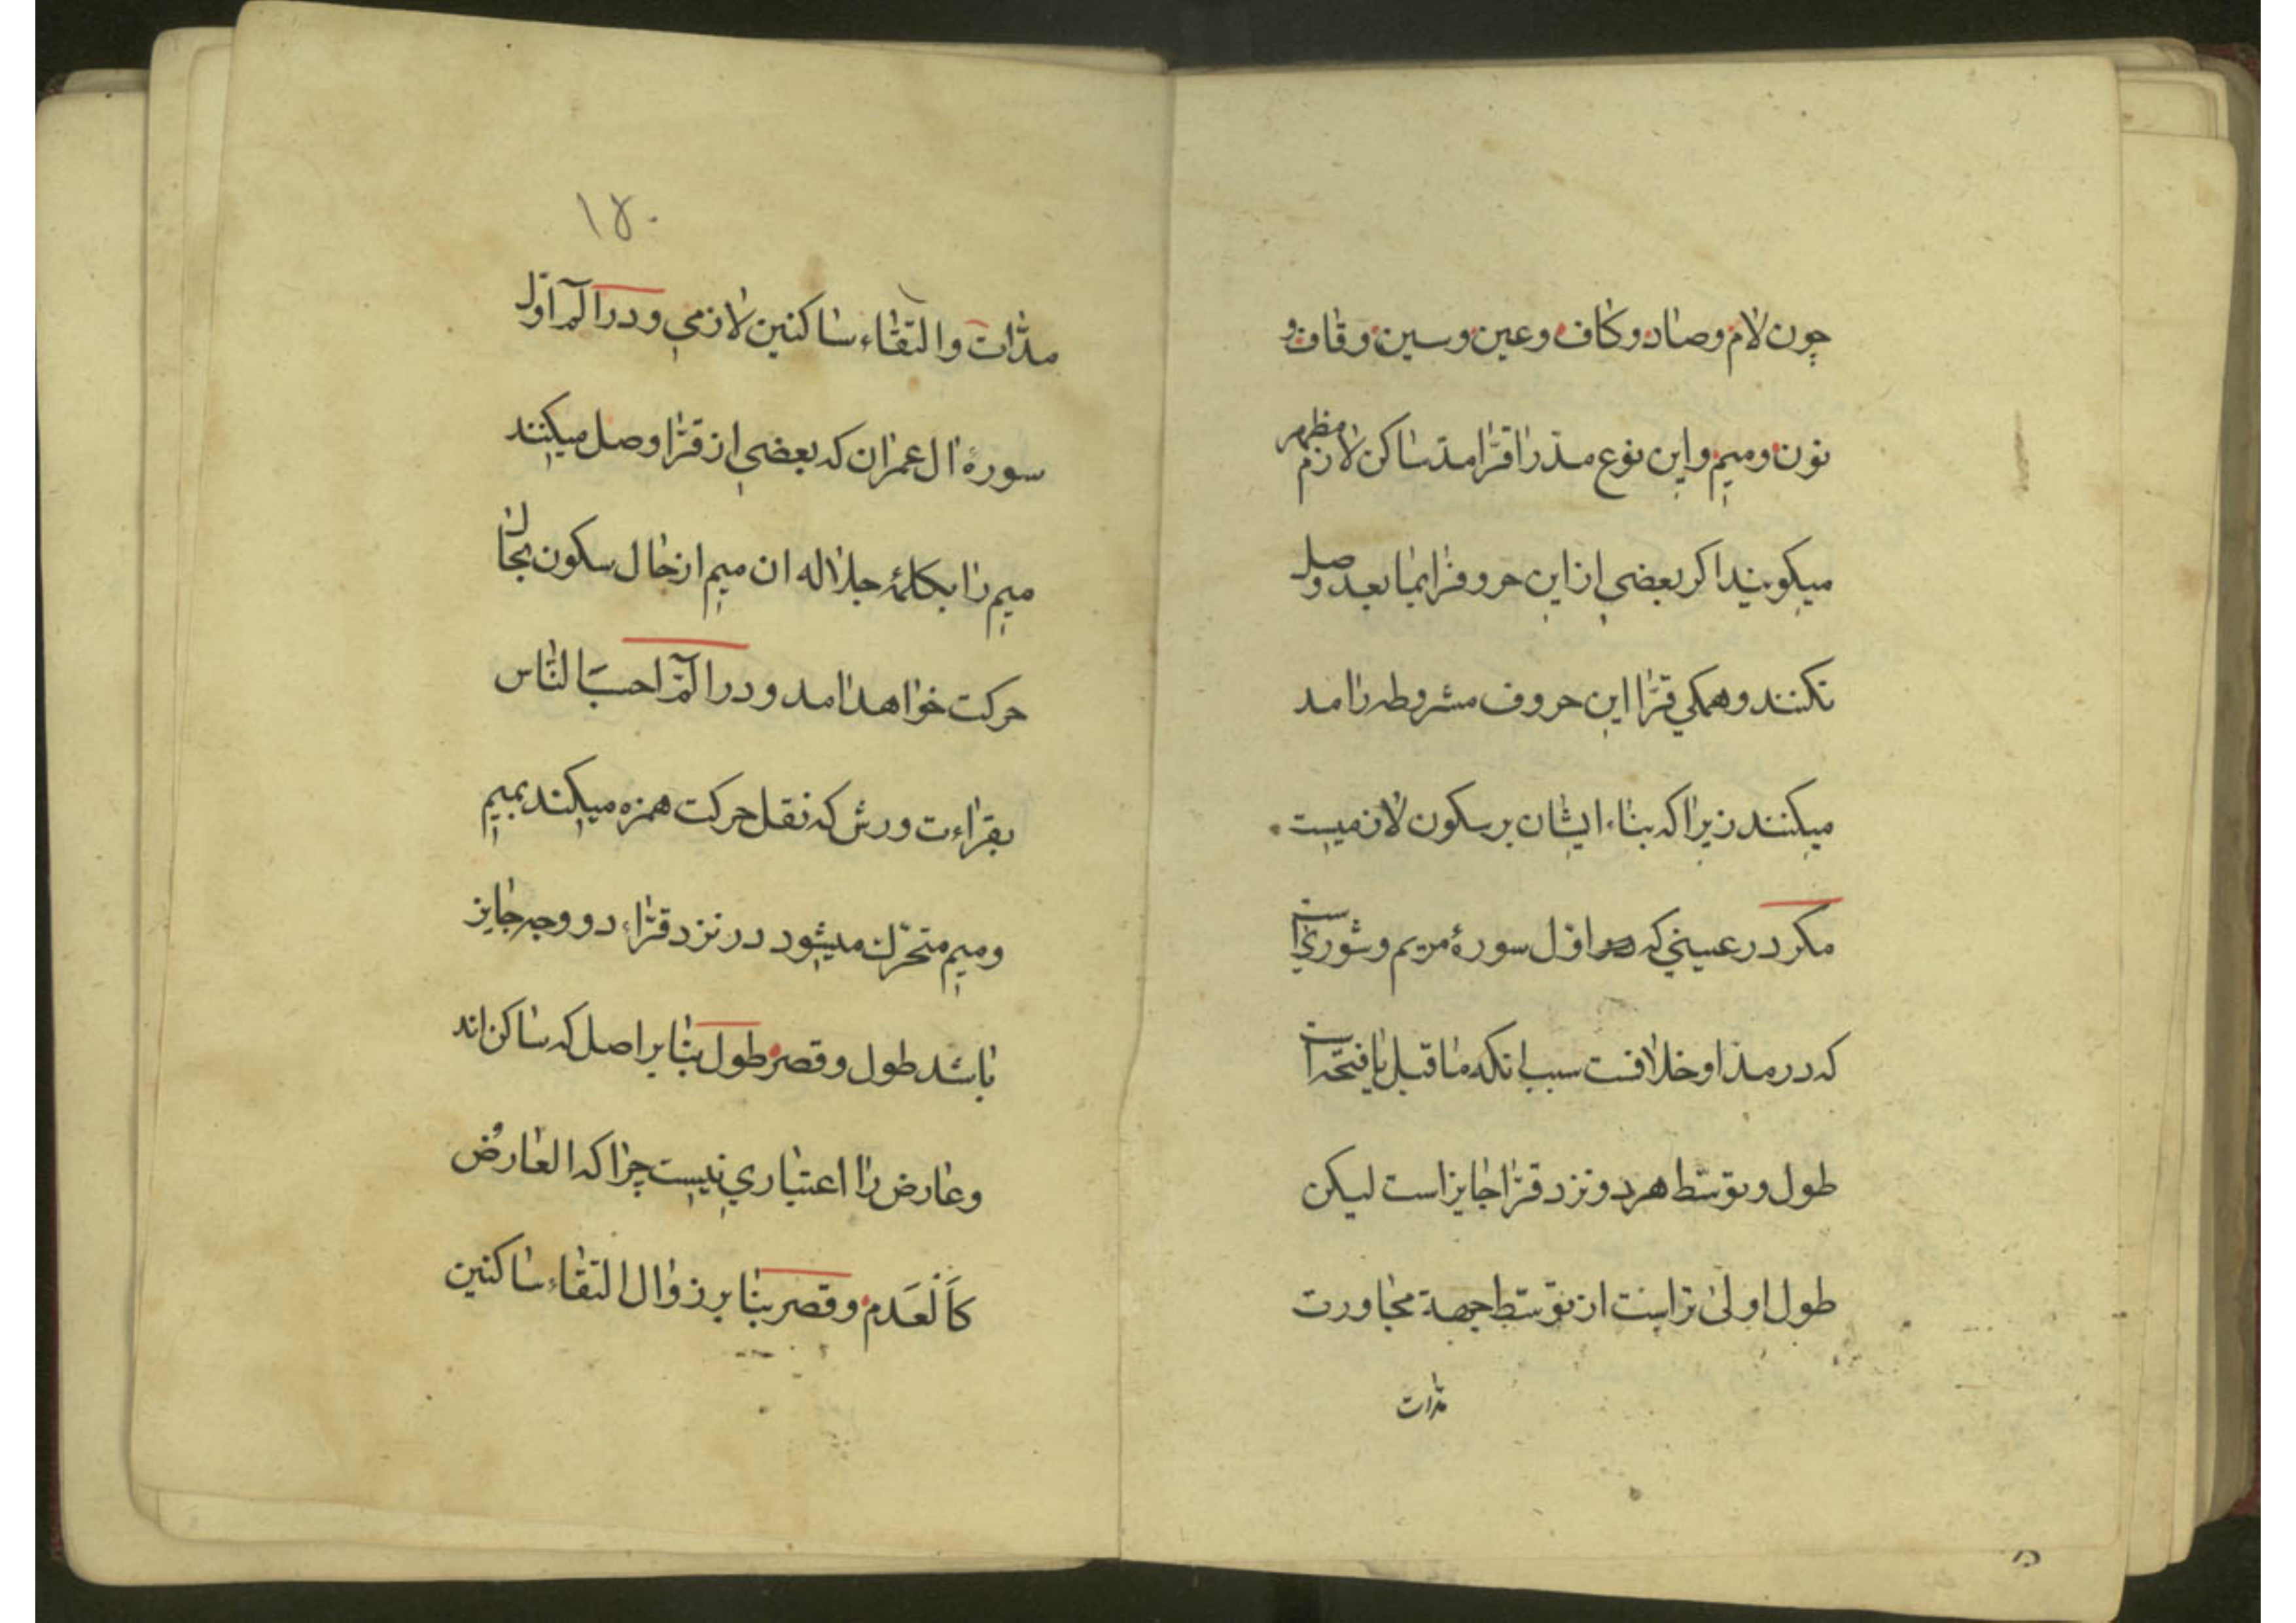 چون لام وصاد وکاف وعین وسین وقاف و
نون ومیم واین نوع مدّ را قرّا مدّ ساکن لازم مظهر
میکویند اکر بعضی ازاین حروفرا بما بعد وصل
نکنند وهمکی قرّا این حروف مشروطه را مد
میکنند زیرا که بناء ایشان بر سکون لازمیست
مکر در عینی که در اوّل سورهٔ مریم وشوری است
که در مدّ او خلافست سبب انکه ماقبل یا فتحه است
طول وتوسّط هر دو نزد قرّا جایز است لیکن
طول اولی تر است از توسّط جهة مجاورت
مدّات
۱۴۰
مدّات والتقاء ساکنین لازمی ودر الۤمۤ اوّل
سورهٔ ال عمران که بعضی از قرّا وصل میکنند
میم را بکلمهٔ جلاله ان میم از حال سکون بحال
حرکت خواهد امد ودر الۤمۤ احسب النّاس
بقراءت ورش که نقل حرکت همزه میکند بمیم
ومیم متحرّک میشود در نزد قرّاء دو وجه جایز
باشد طول وقصر طول بنا بر اصل که ساکن اند
وعارض را اعتباری نیست چرا که العارضُ
کَالْعَدم وقصر بنا بر زوال التقاء ساکنین